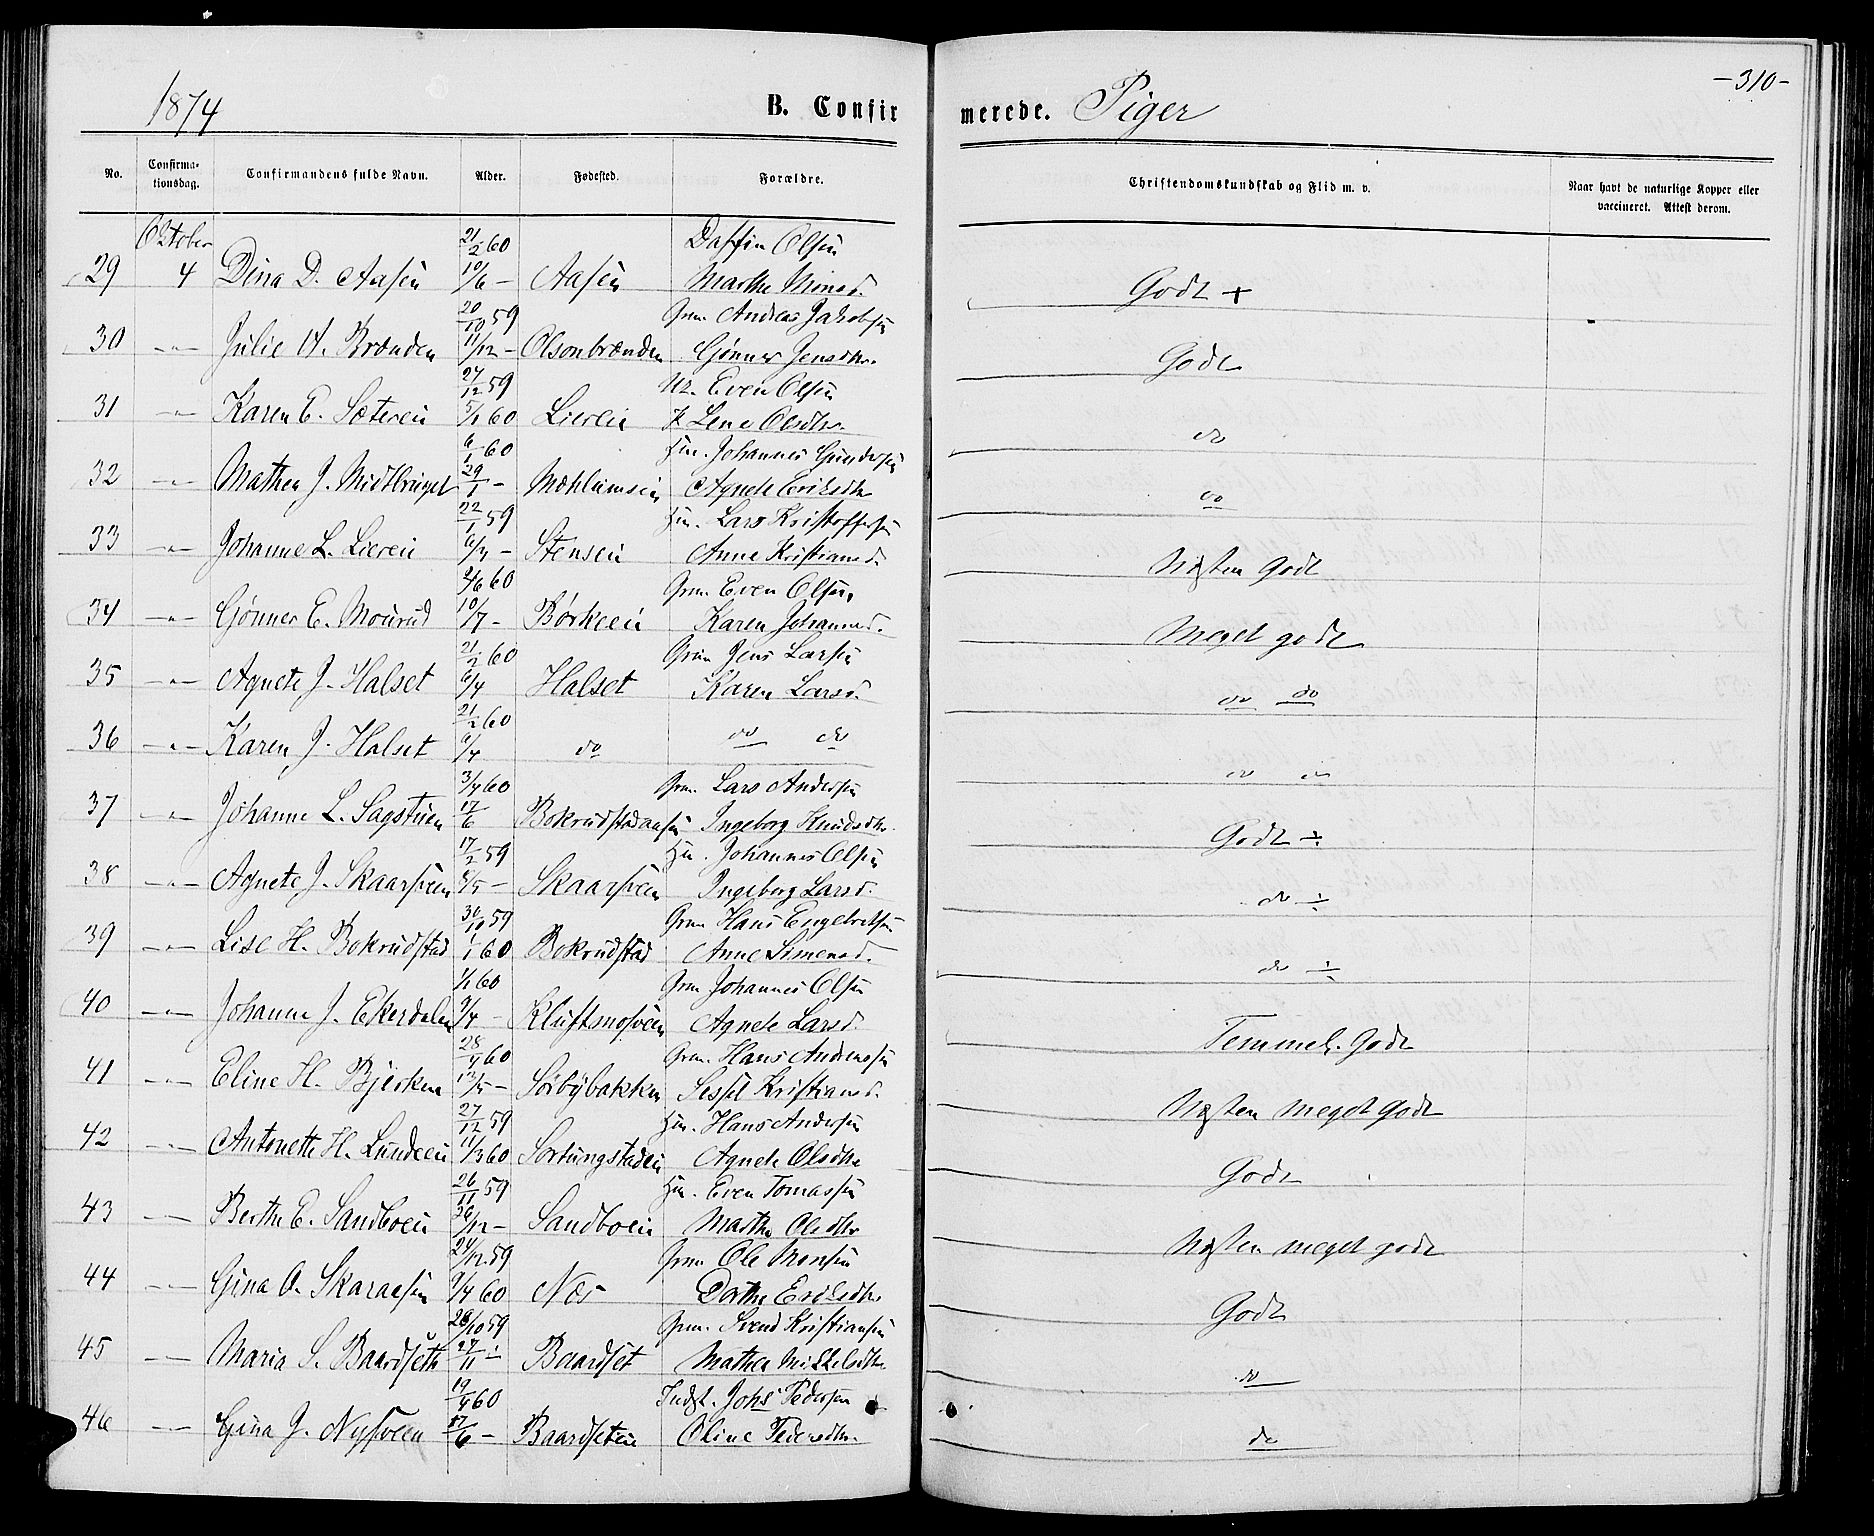 1874 B. Confirmerede. Piger -310-
No. Confirmationsdag. Confirmandens fulde Navn. Alder. Fødested. Forældre. Christendomskundskab og Flid m. v. Naar havt de naturlige Kopper eller vaccineret. Attest derom.
Oktober 21/2 60 Daffin Olsen
29 4 Dina D. Aasen 10/6 - Aasen Marthe Monsd. Godt +
20/10 59 Grm. Andreas Jakobsen
30 -"- Julie A. Brænden 11/12 - Olsonbrænden Gønner Jensdtr. Godt
27/12 59 Even Olsen
31 -"- Karen E. Sæteren 5/2 60 Lieren Lene Olsdtr. do
6/1 60 Johannes Gundersen
32 -"- Mathea J. Midtbruget 29/1 - Mæhlumsen Agnete Eriksdtr do
22/1 59 Hm. Lars Kristoffersen
33 -"- Johanne L. Lieren 6/4 - Stensen Anne Kristiansd. Næsten Godt
2/6 60 Grm. Even Olsen
34 -"- Gønner E. Mourud 10/7 - Børkeen Karen Johannesd. Meget godt
21/2 60 Grm Jens Larsen
35 -"- Agnete J. Halset 6/4 Halset Karen Larsd. do do
21/2 60
36 -"- Karen J. Halset 6/4 do do do do do
3/4 60 Grm. Lars Andersen
37 -"- Johanne L. Sagstuen 17/6 Bokrudstadaasen Ingeborg Knudsdtr. Godt ÷
17/2 59 Hm. Johannes Olsen
38 -"- Agnete J. Skaarsveen 8/5 - Skaarsveen Ingeborg Larsd. do ÷
30/10 59 Grm Hans Engebretsen
39 -"- Lise H. Bokrudstad 1/1 60 Bokrudstad Anne Simensd. do ÷
1/1 60 Grm Johannes Olsen
40 -"- Johanne J. Ekerdalen 9/4 - Kluftsmosveen Agnete Larsd. Temmel. Godt
28/4 60 Grm. Hans Andreassen
41 -"- Eline H. Bjerken 13/5 - Sørbybakken Sessil Kristiansd. Næsten meget Godt
27/12 59 Hm. Hans Andersen
42 -"- Antonette H. Lundeen 11/3 60 Sortungstadeen Agnete Olsdtr Godt
26/11 59 Hm. Even Tomassen
43 -"- Berthe E. Sandboen 26/12 - Sandboen Marthe Olsdtr Næsten meget godt
24/12 59 Grm Ole Monsen
44 -"- Gina O. Skaraasen 9/4 60 Næs Dorthe Eriksdtr. Godt
28/10 59 Grm. Svend Kristiansen
45 -"- Maria S. Baardseth 27/11 - Baardset Mathea Mikkelsdtr. do
19/4 60 Indst. Johs Pedersen
46 -"- Gina J. Nysveen 17/6 - Baardseteie Oline Pedersdtr. do